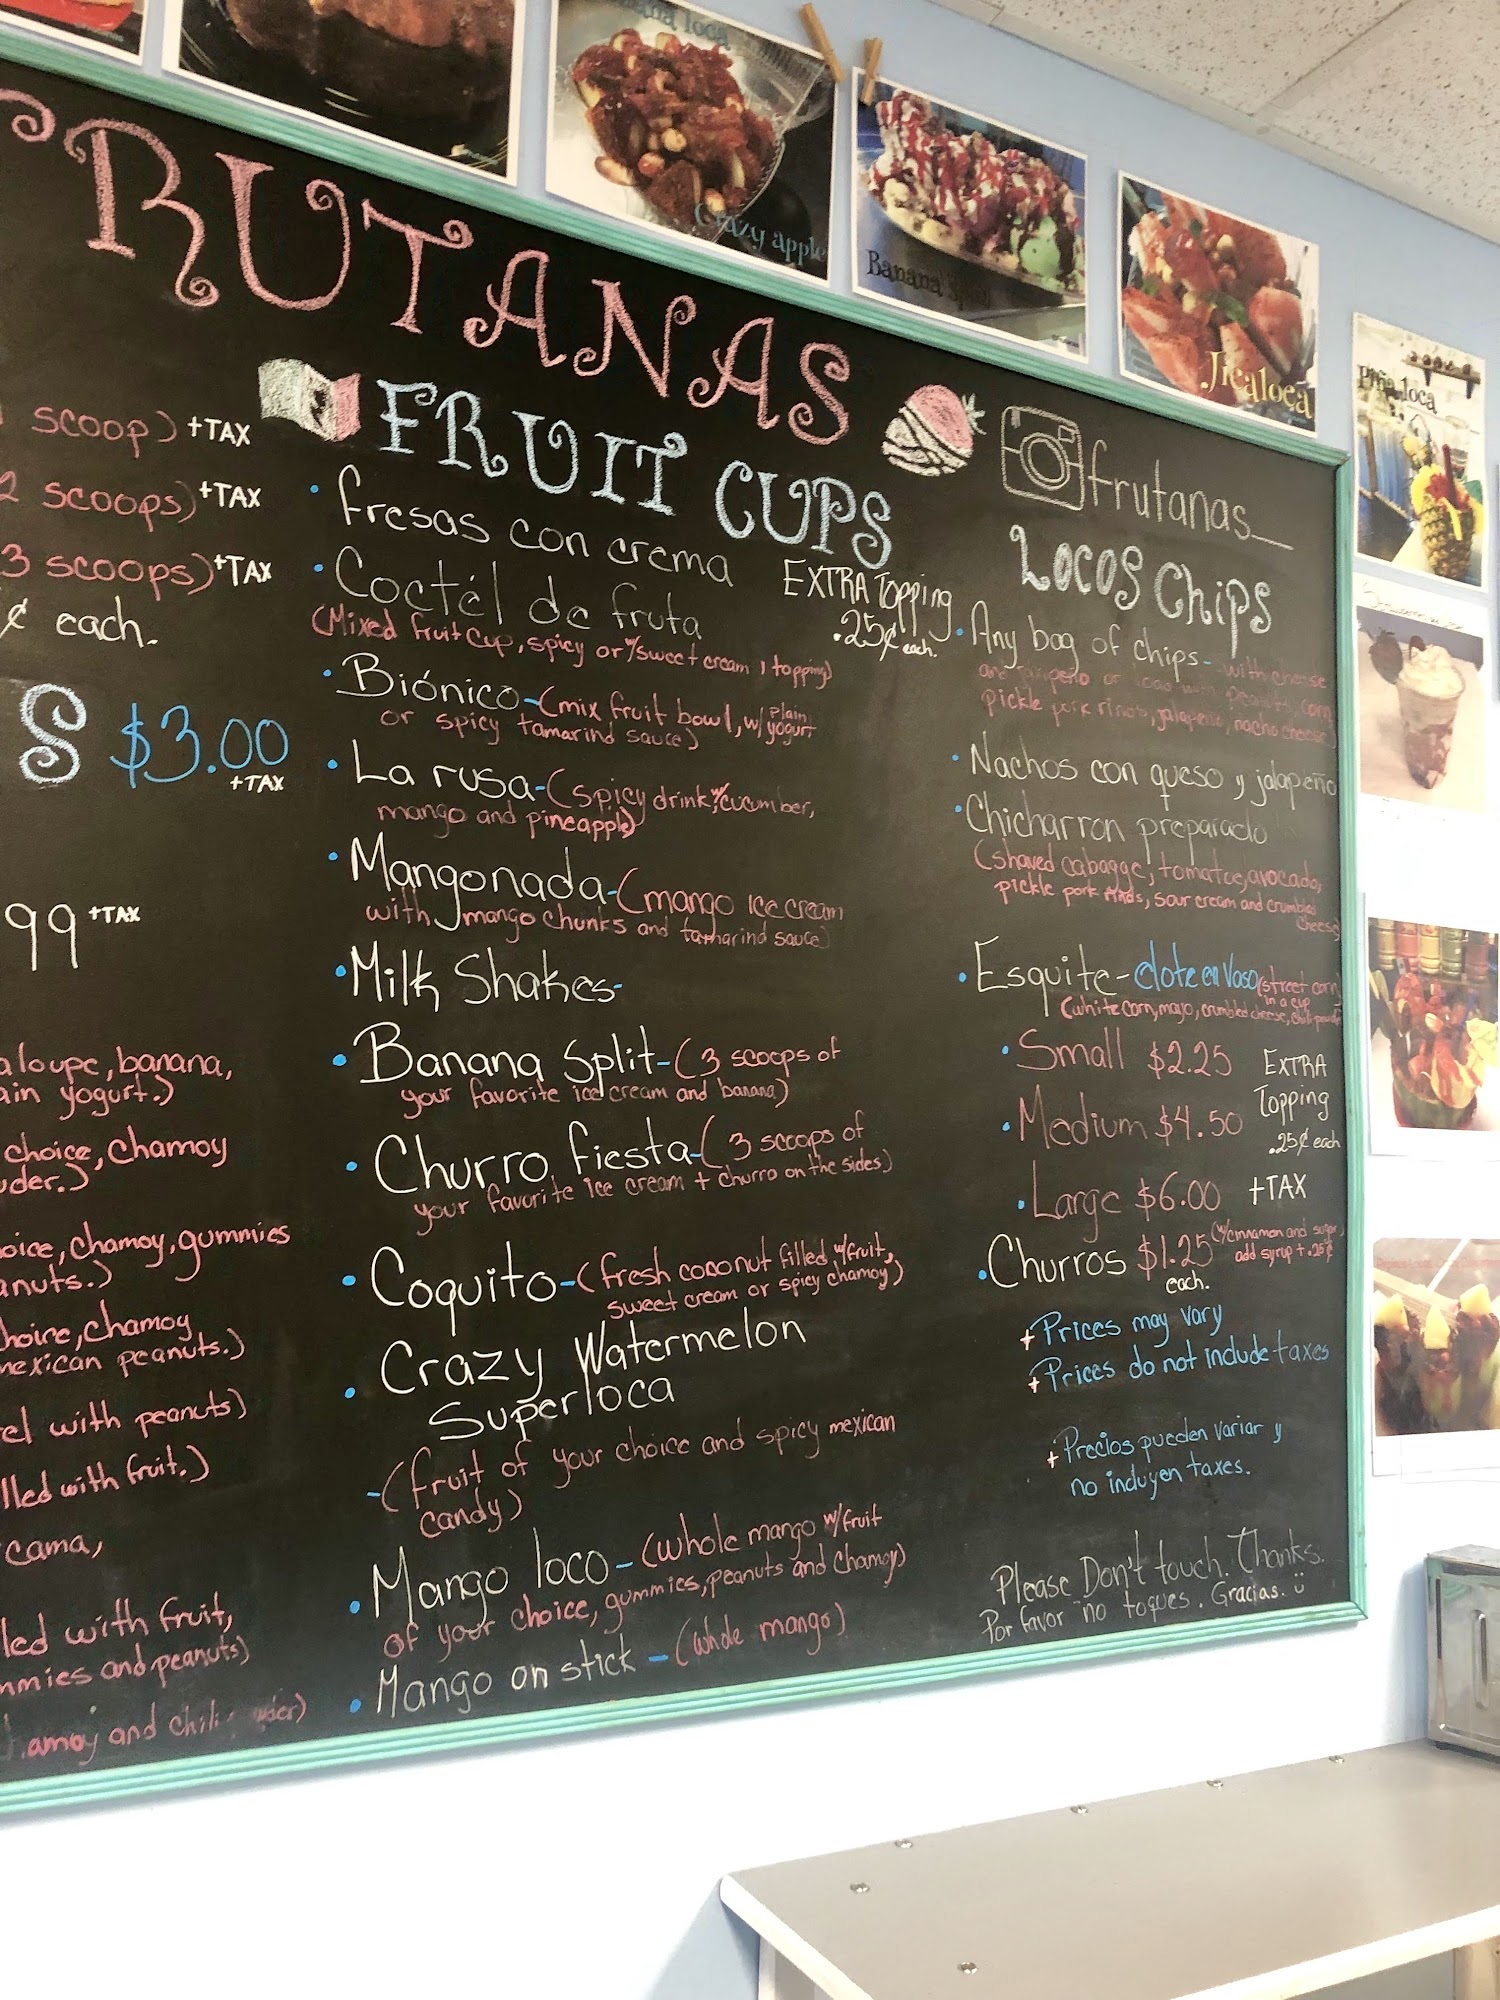 Crazy apple
Banana split
Jicaloca
Piña loca
FRUTANAS
scoop) +TAX
2 scoops) +TAX
3 scoops) +TAX
¢ each.
S $3.00
+TAX
99 +TAX
aloupe, banana,
ain yogurt.)
choice, chamoy
uder.)
oice, chamoy, gummies
anuts.)
hoice, chamoy
mexican peanuts.)
el with peanuts)
lled with fruit.)
cama,
led with fruit,
mmies and peanuts)
amoy and chili
FRUIT CUPS
• fresas con crema
• Coctél de fruta
(Mixed fruit cup, spicy or w/sweet cream, topping)
EXTRA Topping
.25¢ each.
• Biónico - (mix fruit bowl, w/ plain yogurt
or spicy tamarind sauce)
• La rusa - (spicy drink w/ cucumber,
mango and pineapple)
• Mangonada - (mango ice cream
with mango chunks and tamarind sauce)
• Milk Shakes -
• Banana Split - (3 scoops of
your favorite ice cream and banana)
• Churro fiesta - (3 scoops of
your favorite ice cream + churro on the sides)
• Coquito - (fresh coconut filled w/fruit,
sweet cream or spicy chamoy)
• Crazy Watermelon
Superloca
- (fruit of your choice and spicy mexican
candy)
• Mango loco - (whole mango w/fruit
of your choice, gummies, peanuts and chamoy)
• Mango on stick - (whole mango)
frutanas_
Locos Chips
• Any bag of chips - with cheese
and jalapeño or loco with peanuts, corn,
pickle pork rinds, jalapeño, nacho cheese)
• Nachos con queso y jalapeño
• Chicharron preparado
(shaved cabagge, tomatoe, avocado,
pickle pork rinds, sour cream and crumbled
cheese)
• Esquite - elote en vaso (street corn
in a cup
(white corn, mayo, crumbled cheese, chili powder
• Small $2.25
• Medium $4.50
• Large $6.00 +TAX
EXTRA
Topping
.25¢ each
• Churros $1.25 each.
(w/cinnamon and sugar,
add syrup + .25¢
+ Prices may vary
+ Prices do not include taxes
+ Precios pueden variar y
no incluyen taxes.
Please Don't touch. Thanks.
Por favor no toques. Gracias.